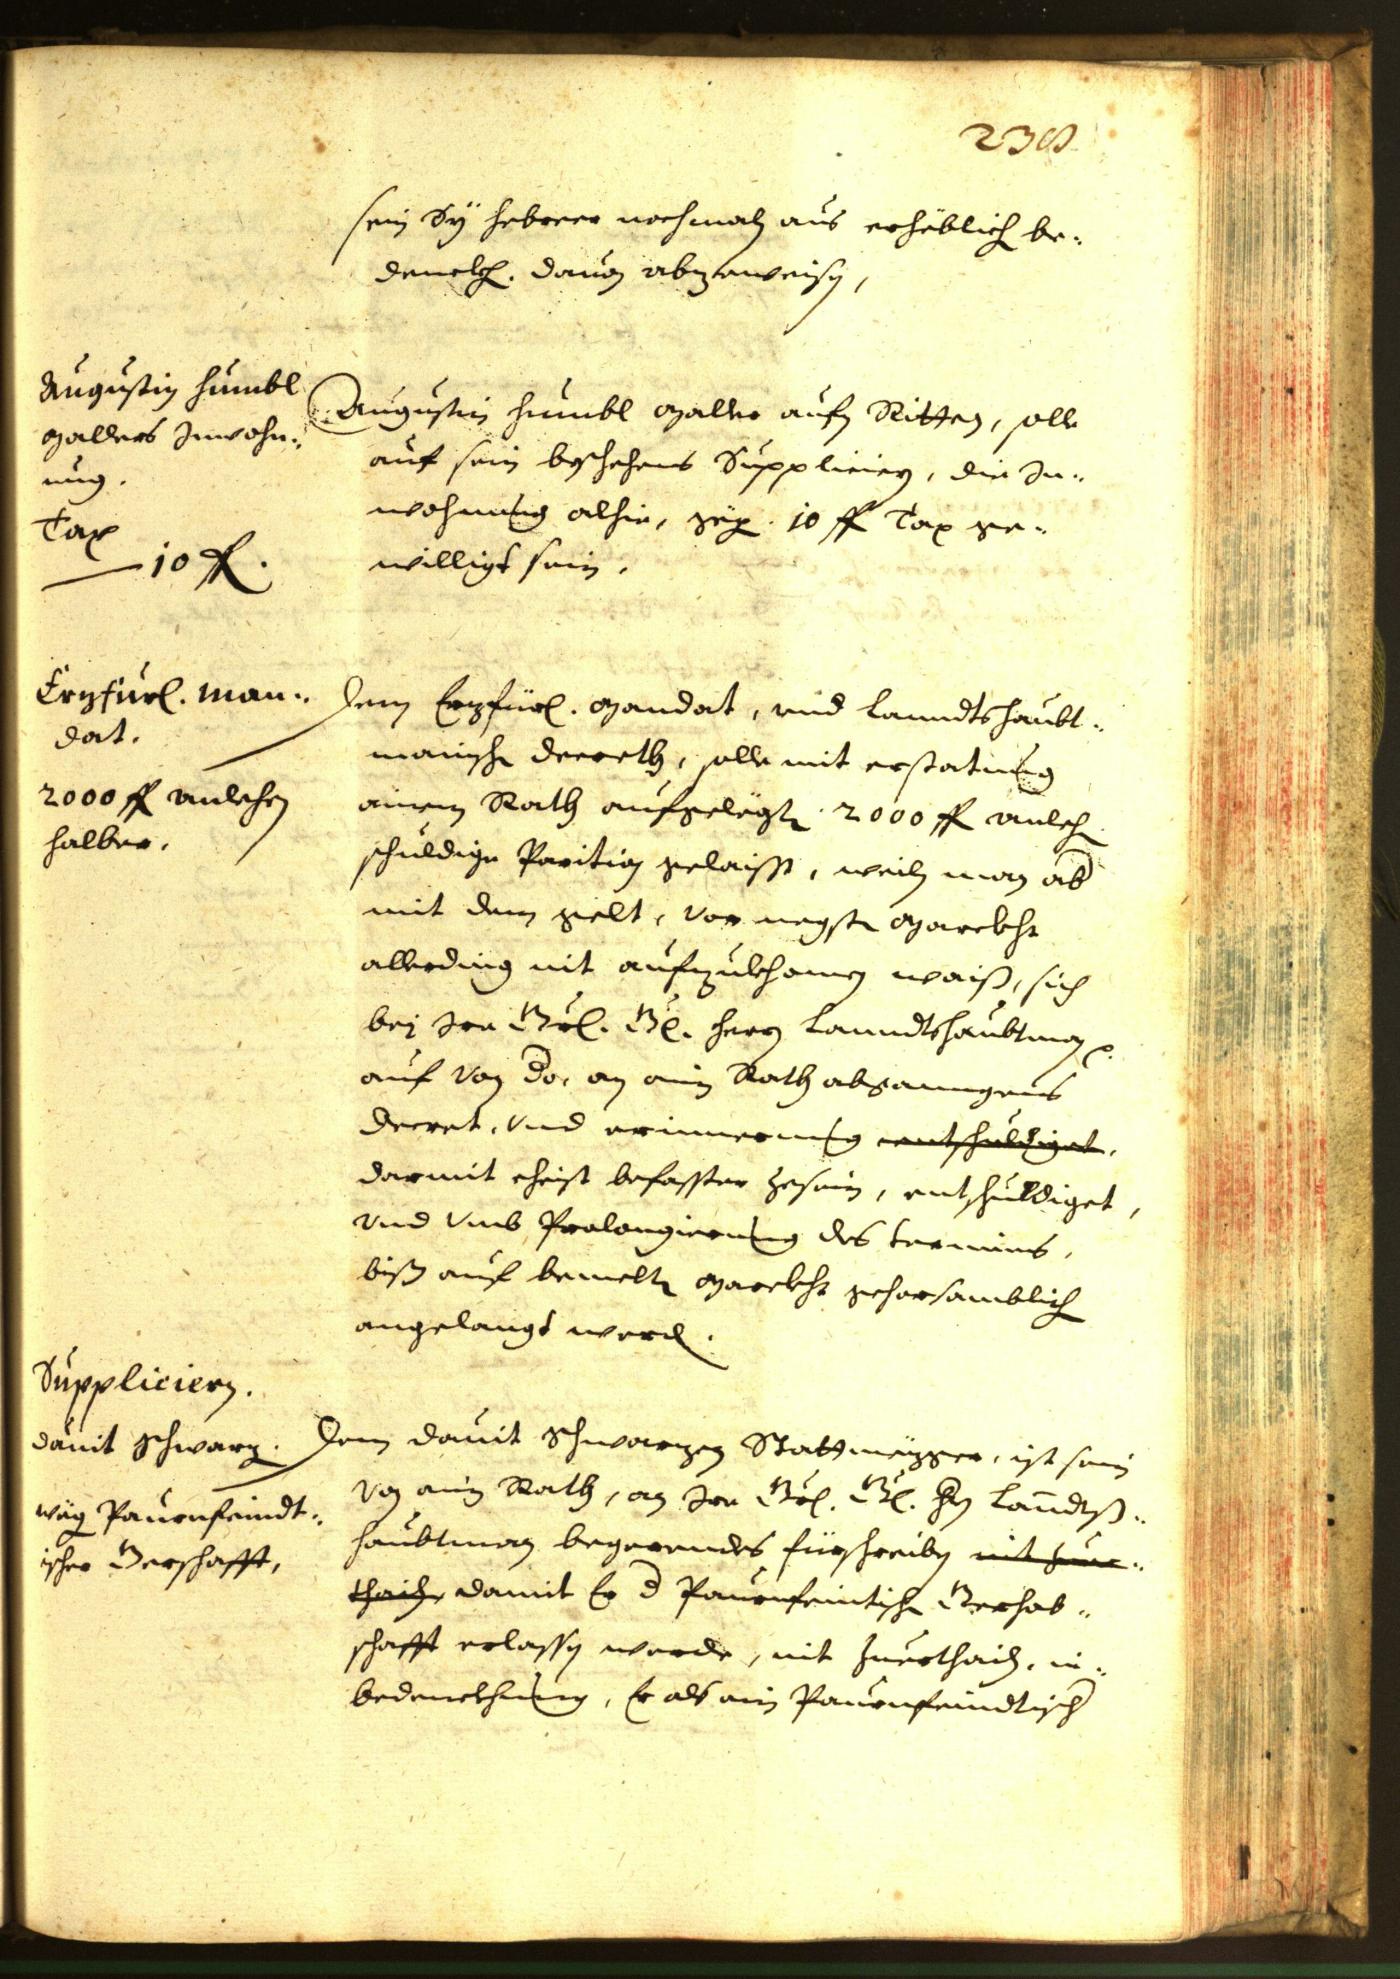 238
sein Sÿ hebreer nochmals aus erheblich be-
denckh. davon abzuweisen,
Augustin Humbl
Mallers Inwohn-
ung.
Tax
10 fl.
Augustin Humbl Maller aufm Ritten, solle
auf sein beschehens Suppliciern, die In-
wohnung alhie, geg. 10 fl Tax ge-
willigt sein.
Erzfürl. Man-
dat.
2000 fl anlehen
halber.
Dem Erzfürl. Mandat, und Lanndtshaubt-
manisch decreth, solle mit erstatung
ainem Rath aufgelegte 2000 fl anlech.
schuldige Parition gelaisst, weiln man ab
mit dem gelt, vor negste Marckht
allerding nit aufzukhomen waiß, sich
bei Irr Gl. Gl. herrn Lanndtshaubtman
auf von do. an ain Rath abganngens
decret, und erinnerung entschuldiget,
darmit eheist befasster zesein, entschuldiget,
und umb Prolongierung des termins,
biß auf bemelte Marckht gehorsamblich
angelangt werd.
Suppliciern.
Davit Schwarz.
weg. Paurnfeindt-
ischer Gerschafft,
Dem Davit Schwarzen Stattmezger, ist sein
von ain Rath, an Irr Gl. Gl. Hrn Lanndtß-
haubtman begerendes fürschreiben nit zuer-
thailn, damit Er d Paurnfeintisch Gerhab-
schafft erlassen werde, nit zuerthailn, in-
bedenckhung, Er als ain Paurnfeindtisch